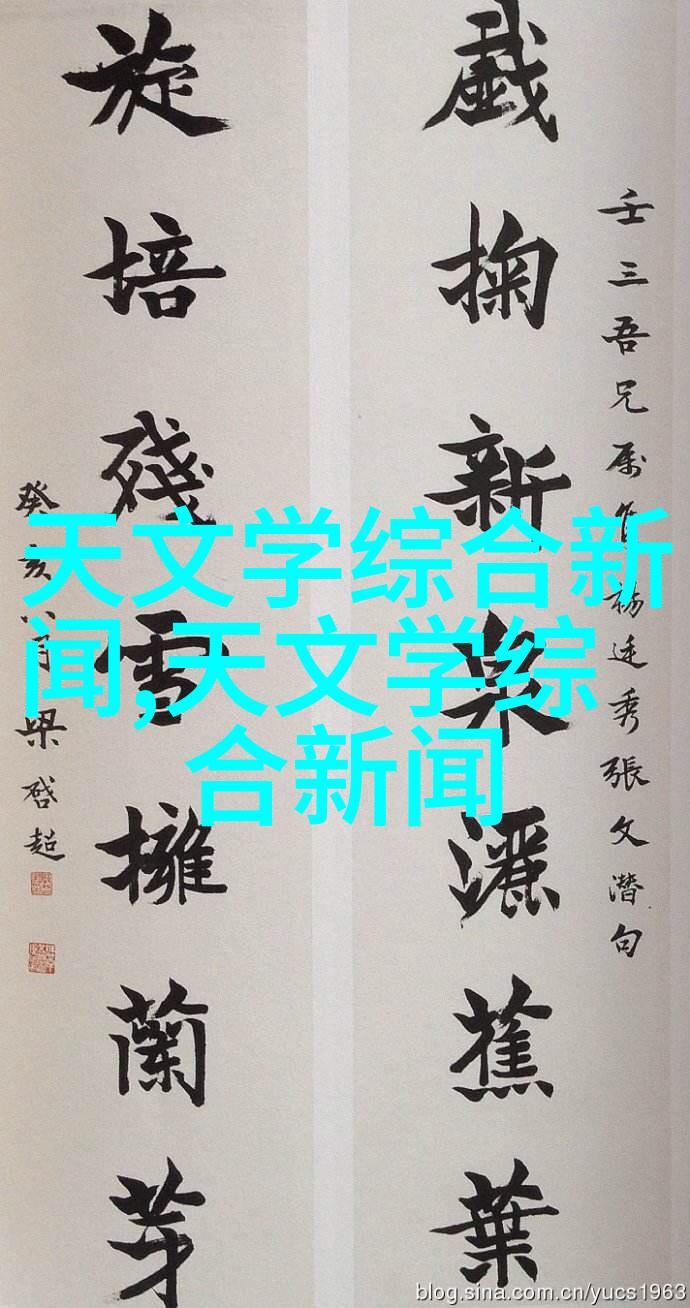 壬三吾兄属
楊廷秀張文潛句
戲掬新泉灑蕉葉
旋培殘雪擁蘭芽
癸亥八月梁啓超
天文学综合新
闻,天文学综
合新闻
blog.sina.com.cn/yucs1963